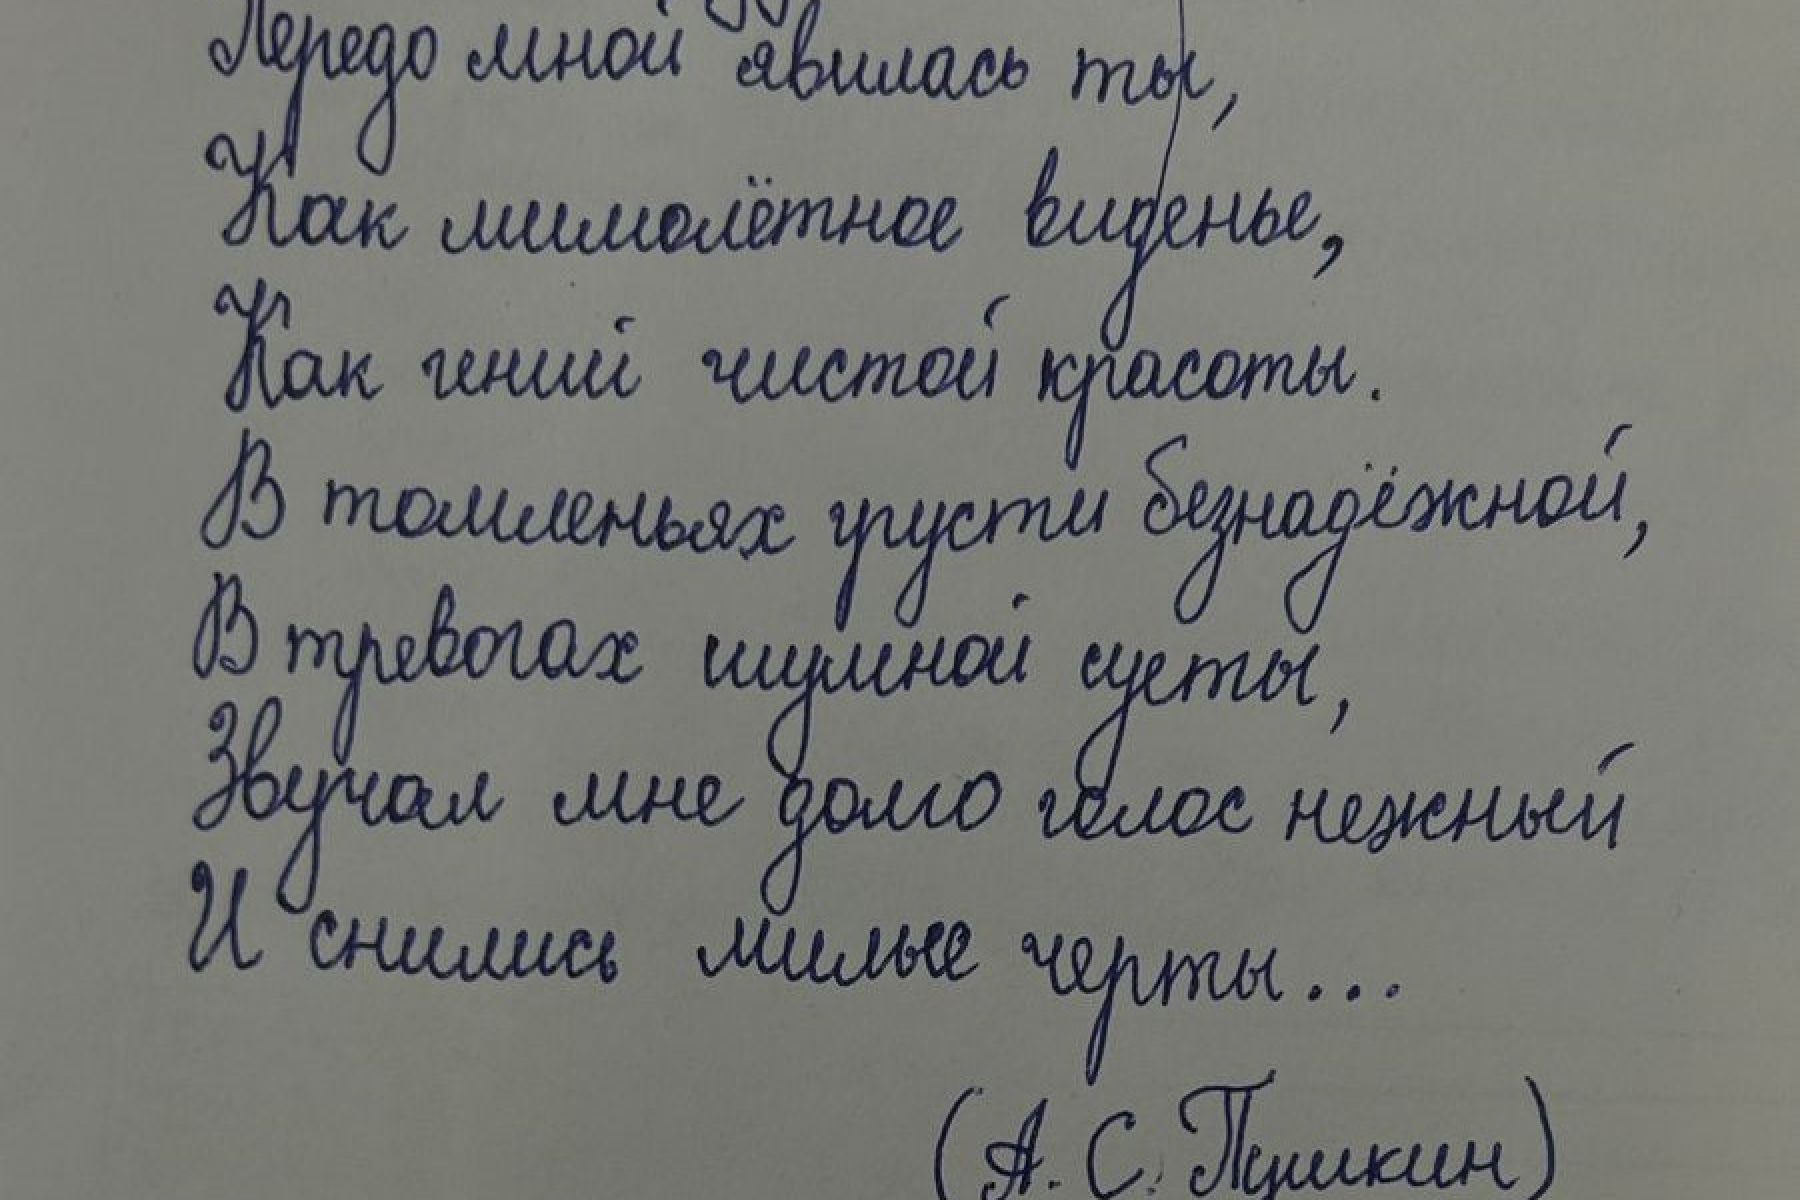 Передо мной явилась ты,
Как мимолётное виденье,
Как гений чистой красоты.
В томленьях грусти безнадёжной,
В тревогах шумной суеты,
Звучал мне долго голос нежный
И снились милые черты...
(А. С. Пушкин)